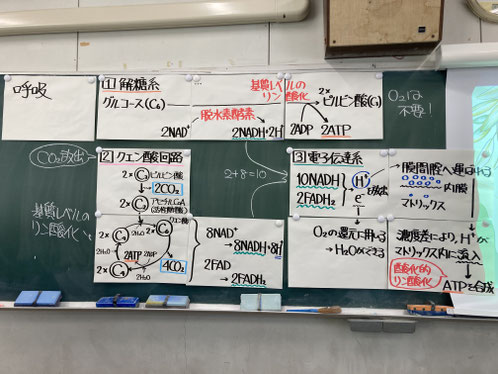 呼吸
1 解糖系
グルコース(C6)
基質レベルの
リン酸化
2× ピルビン酸(C3)
脱水素酵素
2NAD+ 2NADH+2H+
2ADP 2ATP
O2は
不要!
CO2放出
2 クエン酸回路
2× C3 ピルビン酸
2CO2
2× C2 アセチルCoA
(活性酢酸)
クエン酸
2× C4 2× C6
2ATP 2ADP
2H2O
4CO2
基質レベルの
リン酸化
8NAD+
→8NADH+8H+
2FAD
→2FADH2
2+8=10
3 電子伝達系
10NADH
2FADH2
H+
e-
を放出
→膜間腔へ運ばれる
内膜
マトリックス
O2の還元に用いる
→H2Oができる
濃度差により、H+が
マトリックス内に流入
酸化的
リン酸化
ATPを合成